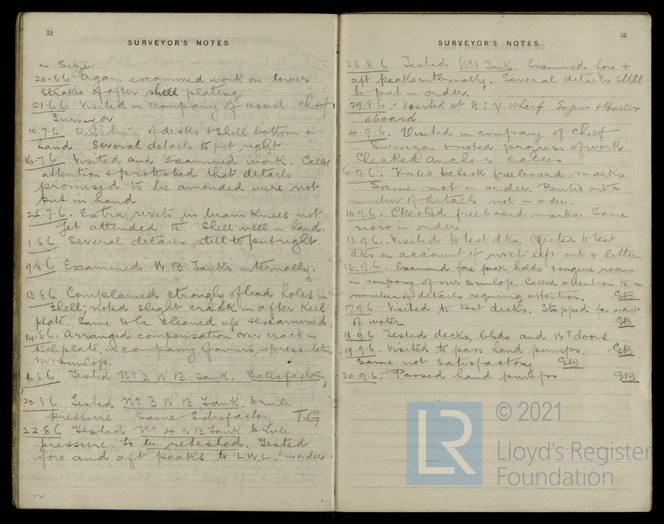 32
SURVEYOR'S NOTES.
in Series.
20-6.6 Again examined work on lower
strakes of after shell plating
21.6.6 Visited in company of assist Chief
Surveyor
10.7.6. Riveting of decks & shell bottom in
hand. Several details to put right
16.7.6 Visited and examined work. Called
attention & protested that details
promised to be amended were not
put in hand.
26.7.6. Extra rivets in beam knees not
yet attended to Shell well in hand.
1.8.6 Several details still to put right.
9.8.6 Examined W B Tanks internally.
13.8.6 Complained strongly of bad holes in
shell; noted slight crack in after keel
plate. Same to be cleaned up & examined.
14.8.6. Arranged compensation over crack in
Keel plate, in company of owners representative
Mr Dunlop.
Tested No 2 W B Tank. Satisfactory
20.8.6 Tested No 3 W B Tank. &
pressure Same Satisfactory T.G
22.8.6 Tested No 4 W B Tank &
pressure. To be retested. Tested
fore and aft peaks to L.W.L. in order
33
SURVEYOR'S NOTES.
23.8.6. Tested No 1 Tank. Examined fore &
aft peaks internally. Several details still
to put in order.
29.8.6. Visited at N. S. Y. Wharf Engine & Boiler
aboard
4.9.6. Visited in company of Chief
Surveyor & noted progress of work
Checked Anchor Cables
6.9.6. Visited to check freeboard marks.
Same not in order. Pointed out a
number of details not in order.
10.9.6. Checked freeboard marks. Same
now in order.
11.9.6. Visited to test dks, Objected to test
dks on account of rivets left out &
13.9.6. Examined fore peak, holds & engine rooms
in company of Mr Dunlop. Called attention to a
number of details requiring attention. GB
17.9.6 Visited to test decks. Stopped for want
of water GB
18.9.6 Tested decks, blhds and W T doors
19.9.6. Visited to pass hand pumps. GB
Same not satisfactory GB
20.9.6. Passed hand pumps GB
LR
© 2021
Lloyd's Register
Foundation